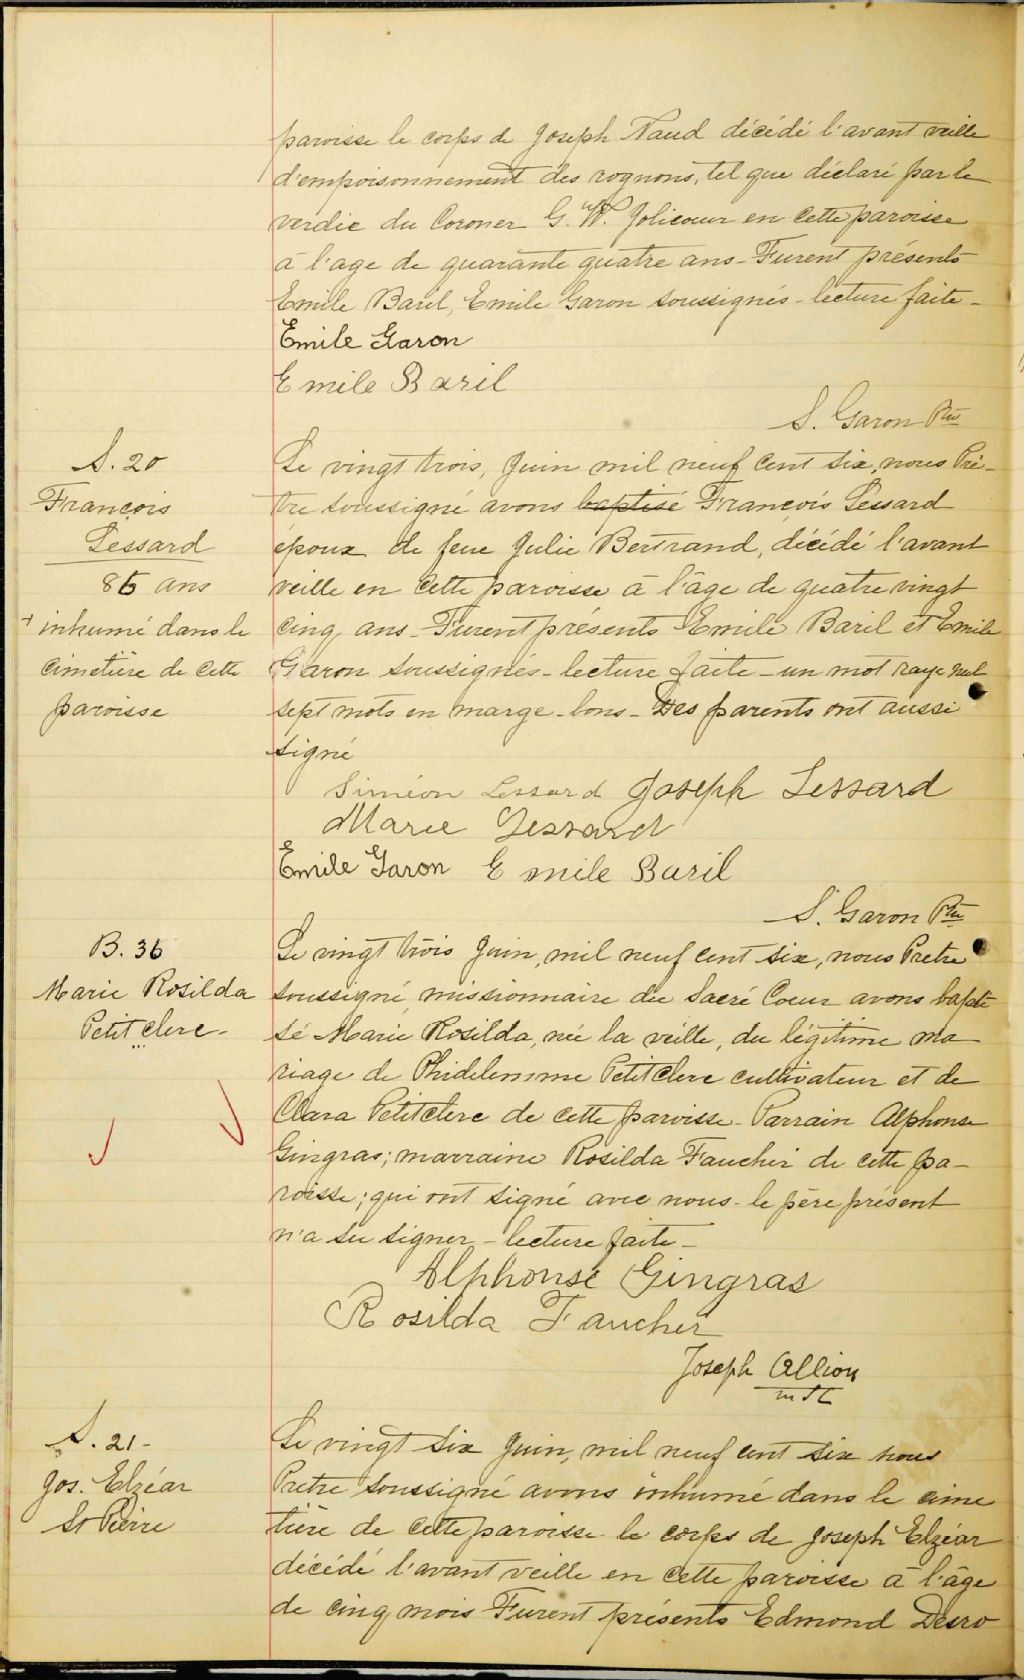 paroisse le corps de Joseph Naud décédé l'avant veille
d'empoisonnement des rognons, tel que déclaré par le
verdic du Coroner G. W. Jolicoeur en cette paroisse
à l'age de quarante quatre ans - Furent présents
Emile Baril, Emile Garon soussignés - lecture faite -
Emile Garon
Emile Baril
S. Garon Ptre
S. 20
François
Lessard
85 ans
+ inhumé dans le
cimetière de cette
paroisse
Le vingt trois, Juin mil neuf cent six, nous Prê-
tre soussigné avons baptisé François Lessard
époux de feue Julie Bertrand, décédé l'avant
veille en cette paroisse à l'âge de quatre vingt
cinq ans - Furent présents Emile Baril et Emile
Garon soussignés - lecture faite - un mot rayé nul
sept mots en marge - bons - Des parents ont aussi
signé
Siméon Lessard Joseph Lessard
Marie Lessard
Emile Garon Emile Baril
S. Garon Ptre
B. 36
Marie Rosilda
Petitclerc -
Le vingt trois Juin, mil neuf cent six, nous Pretre
soussigné missionnaire du Sacré Coeur avons bapti
sé Marie Rosilda, née la veille, du légitime ma-
riage de Phidelemme Petitclerc cultivateur et de
Clara Petitclerc de cette paroisse - Parrain Alphonse
Gingras; marraine Rosilda Faucher de cette pa-
roisse; qui ont signé avec nous - le père présent
n'a su signer - lecture faite -
Alphonse Gingras
Rosilda Faucher
Joseph Allion
m S C
S. 21 -
Jos. Elzéar
St Pierre
Le vingt six Juin, mil neuf cent six nous
Pretre soussigné avons inhumé dans le cime
tière de cette paroisse le corps de Joseph Elzéar
décédé l'avant veille en cette paroisse à l'âge
de cinq mois Furent présents Edmond Desro